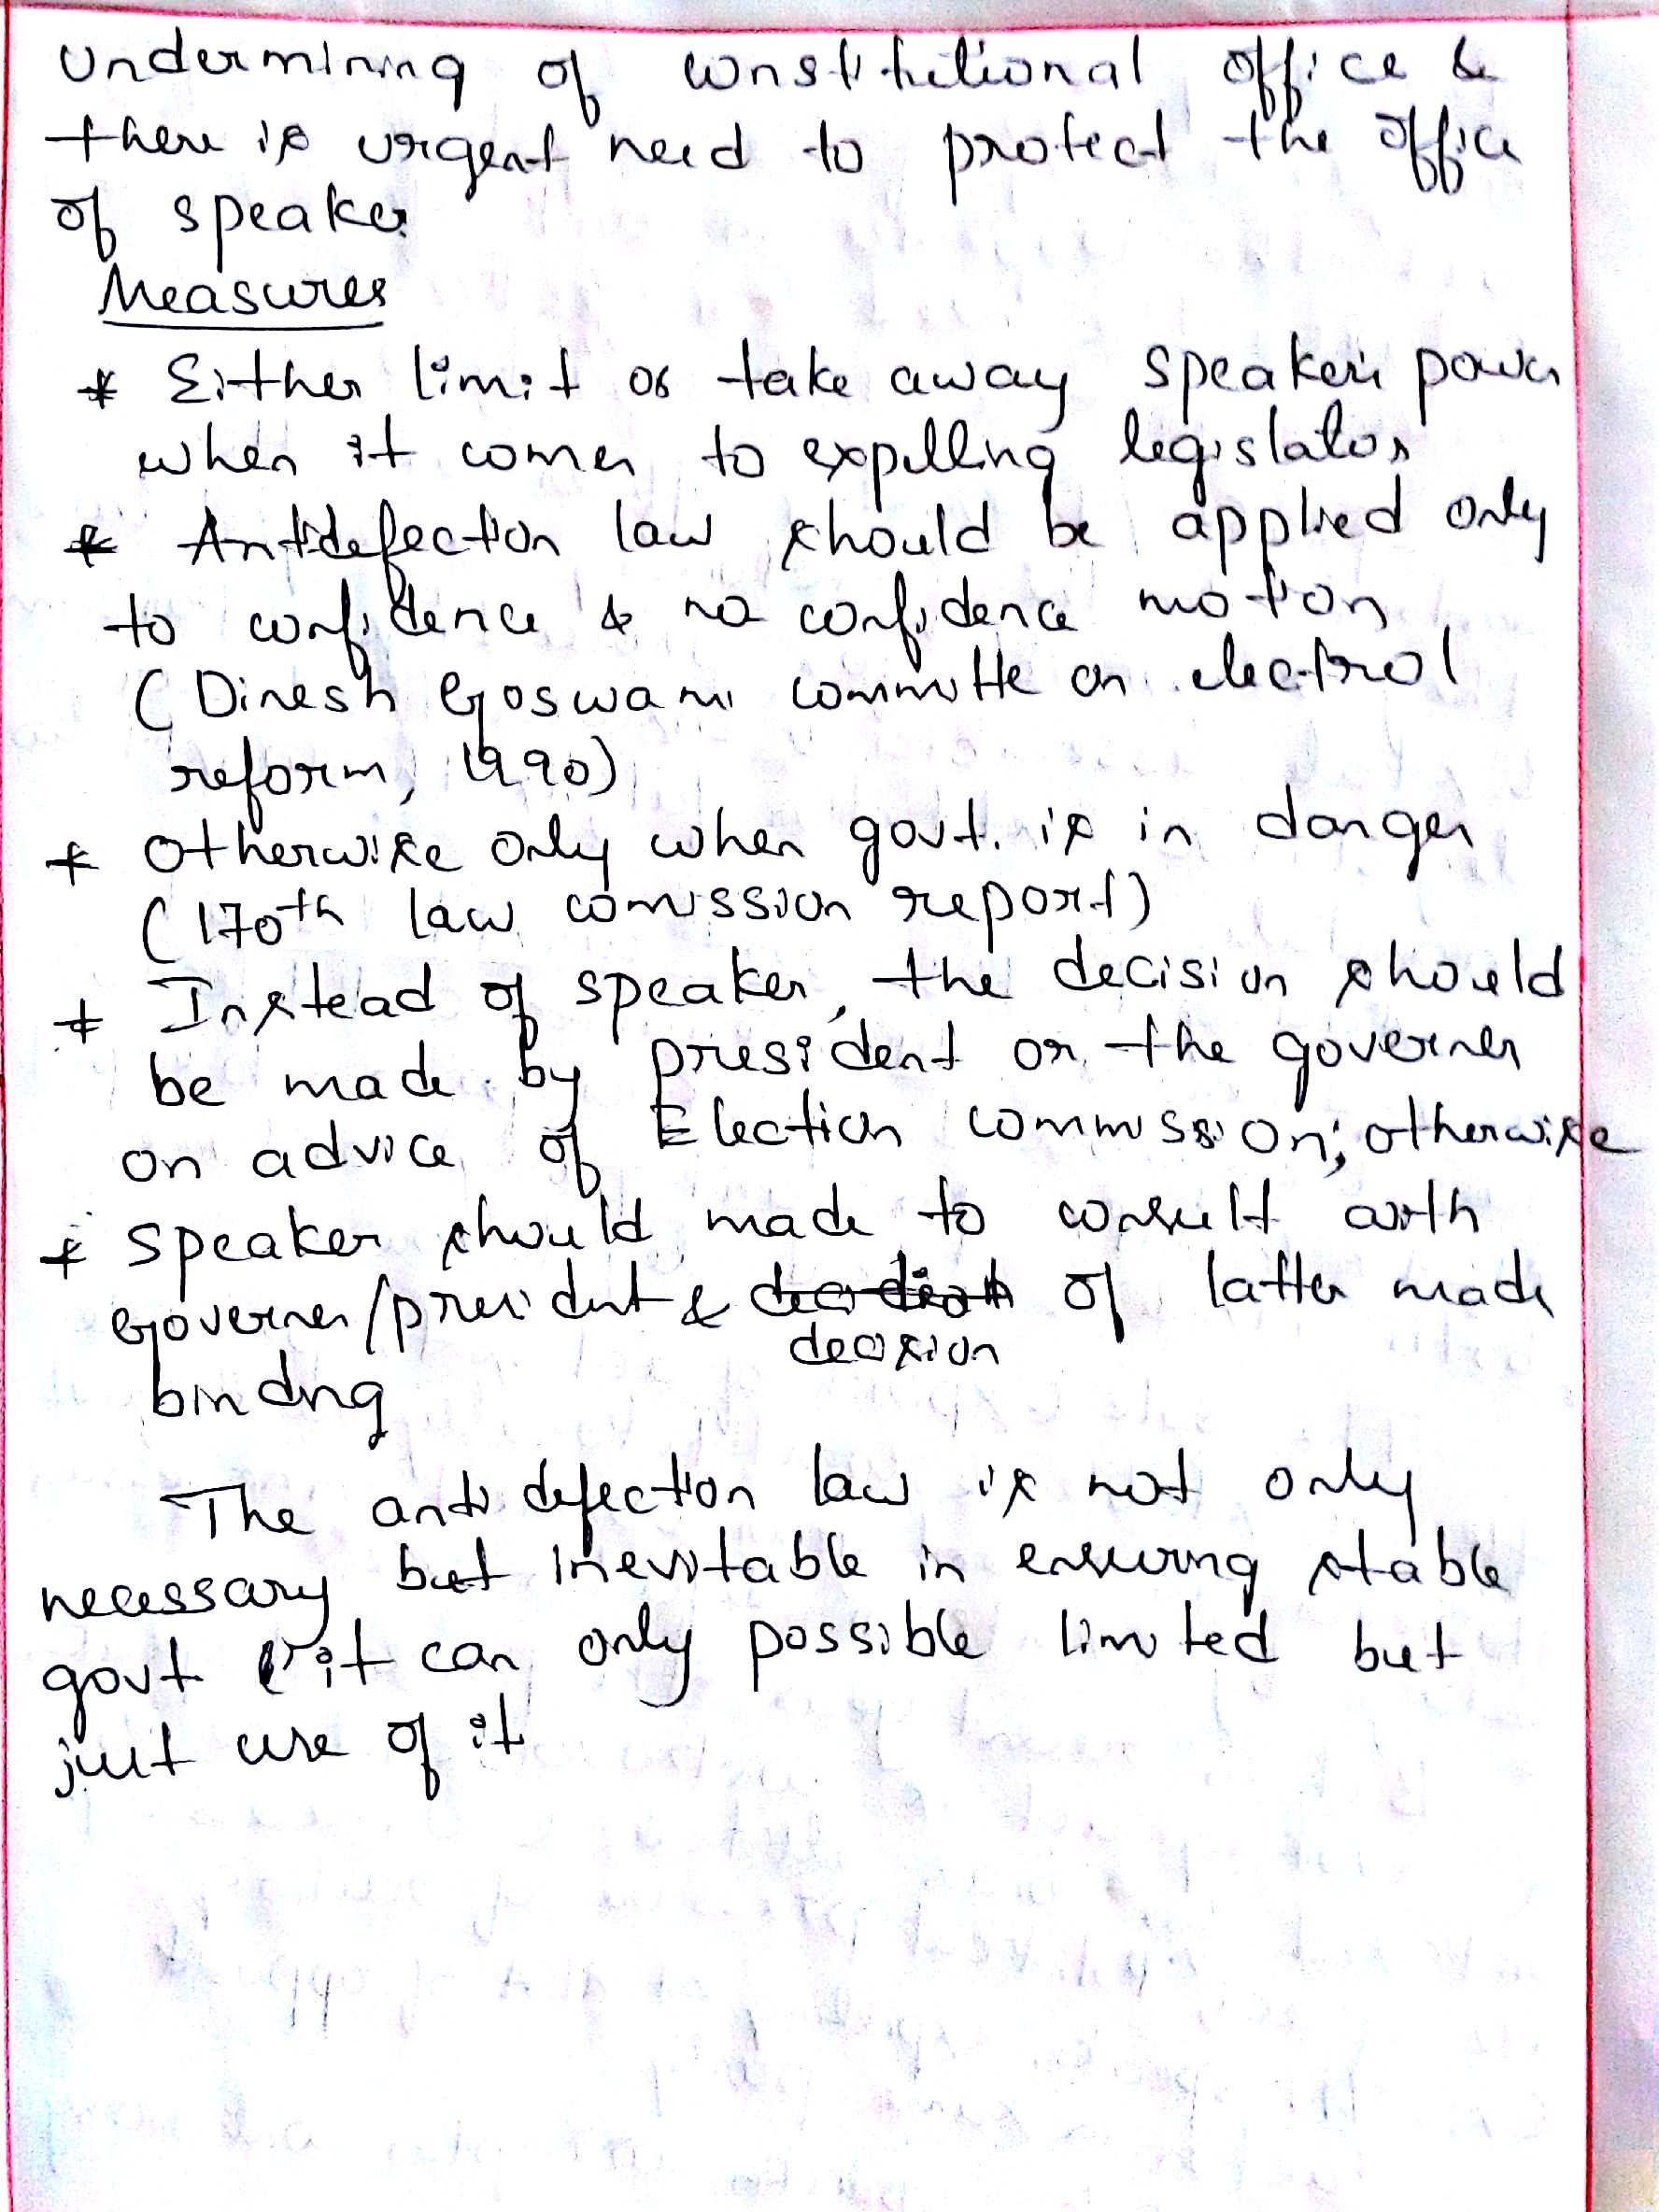 Undermining of constitutional office &
there is urgent need to protect the office
of speaker
Measures
* Either limit or take away speaker's power
when it comes to expelling legislators
* Antidefection law should be applied only
to confidence & no confidence motion
(Dinesh Goswami committe on electrol
reform, 1990)
* Otherwise only when govt. is in danger
(170th law comission report)
* Instead of speaker, the decision should
be made by president or the governer
on advice of Election commission; otherwise
* speaker should made to consult with
Governer/president & decision of latter made
binding
The anti defection law is not only
necessary but inevitable in ensuring stable
govt & it can only possible limited but
just use of it